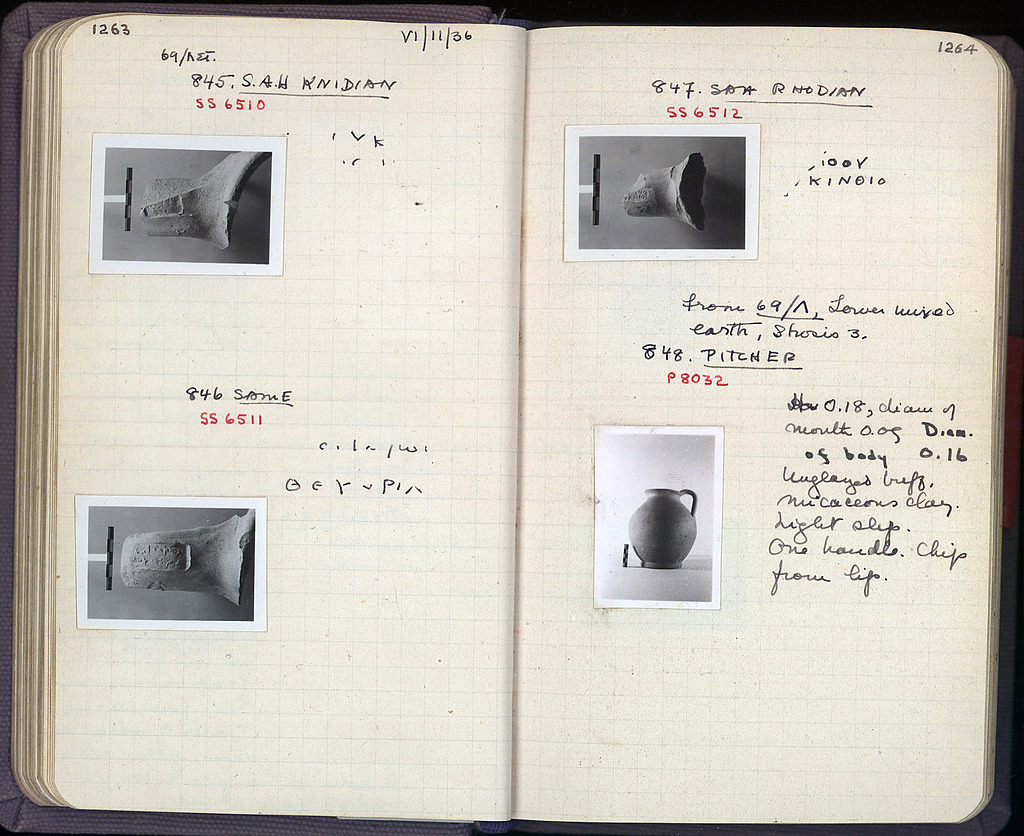 1263
VI/11/36
69/ΛΣΤ.
845. S.A.H KNIDIAN
SS 6510
846 SAME
SS 6511
1264
847. SAH RHODIAN
SS 6512
ΙΟΟΥ
ΚΙΝΘΙΟ
from 69/Λ, Lower mixed
earth, Strosis 3.
848. PITCHER
P 8032
0.18, diam of
mouth 0.09 Diam.
of body 0.16
Unglazed buff.
micaceous clay.
Light slip.
One handle. Chip
from lip.